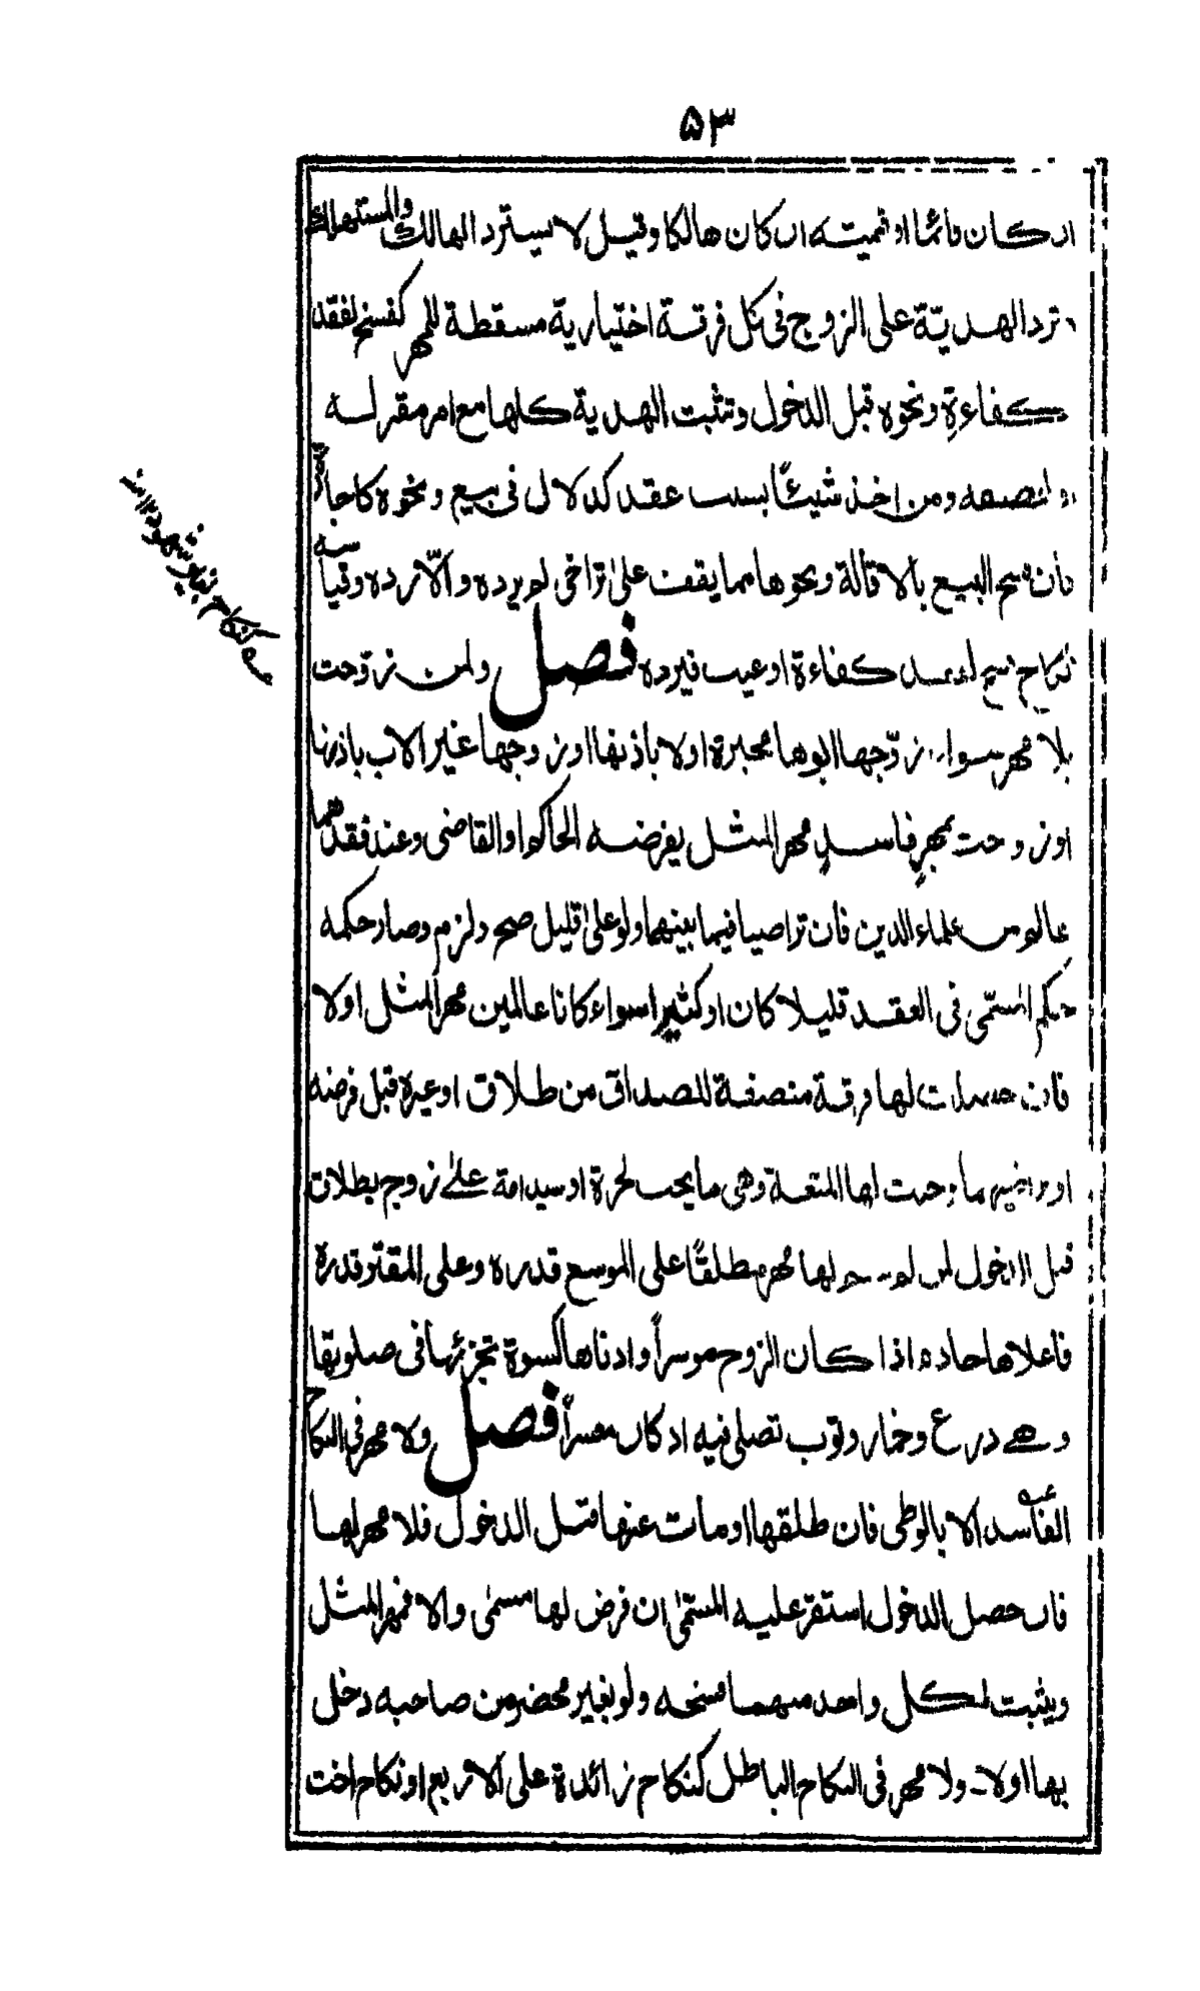 ۵۳
ان كان قائما او قيمته ان كان هالكا وقيل لا يسترد الهالك والمستهلك
ترد الهديّة على الزوج فى كل فرقة اختيارية مسقطة للمهر كفسخ لفقد
كفاءةٍ ونحوه قبل الدخول وتثبت الهدية كلها مع امر مقرر له
او لنصفه ومن اخذ شيئًا بسبب عقد كدلال فى بيع ونحوه كاجارة
فان فسخ البيع بالاقالة ونحوها مما يقف على تراضى لم يرده والّا رده وقياسه
نكاح فسخ لفقد كفاءة او عيب فيرده فصل ولمن زوّجت
بلا مهر سواء زوّجها ابوها مجبرة اولا باذنها او زوجها غير الاب باذنها
او زوجت بمهرٍ فاسدٍ مهر المثل يفرضه الحاكم او القاضى وعند فقدهما
عالم من علماء الدين فان تراضيا فيما بينهما ولو على قليل صح ولزم وصار حكمه
حكم المسمّى فى العقد قليلا كان او كثيرا سواء كانا عالمين مهر المثل اولا
فان حصلت لها فرقة منصفة للصداق من طلاق او غيره قبل فرضه
او تراضيهما وجبت لها المتعة وهى ما يجب لحرة او سيد امة على زوج بطلاق
قبل الدخول لمن لم يسم لها مهر مطلقًا على الموسع قدره وعلى المقتر قدره
فاعلاها خادم اذا كان الزوج موسراً وادناها كسوة تجزئها فى صلوتها
وهے درع وخمار وثوب تصلى فيه اذ كان معسراً فصل ولا مهر فى النكاح
الفاسد الا بالوطى فان طلقها او مات عنها قبل الدخول فلا مهر لها
فان حصل الدخول استقر عليه المسمّٰى ان فرض لها مسمٰى والا فمهر المثل
ويثبت لكل واحد منهما فسخه ولو بغير محضر من صاحبه دخل
بها اولا۔ ولا مهر فى النكاح الباطل كنكاح زائدة على الاربع او نكاح اخت
كنكاح بغير شهود ۱۲ منه